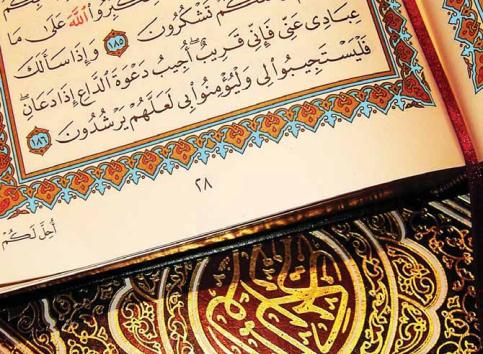 كُمْ تَشْكُرُونَ ١٨٥ وَإِذَا سَأَلَكَ
كَبِّرُوا۟ ٱللَّهَ عَلَىٰ مَا
عِبَادِى عَنِّى فَإِنِّى قَرِيبٌ ۖ أُجِيبُ دَعْوَةَ ٱلدَّاعِ إِذَا دَعَانِ ۖ
فَلْيَسْتَجِيبُوا۟ لِى وَلْيُؤْمِنُوا۟ بِى لَعَلَّهُمْ يَرْشُدُونَ ١٨٦
٢٨
أُحِلَّ لَكُمْ